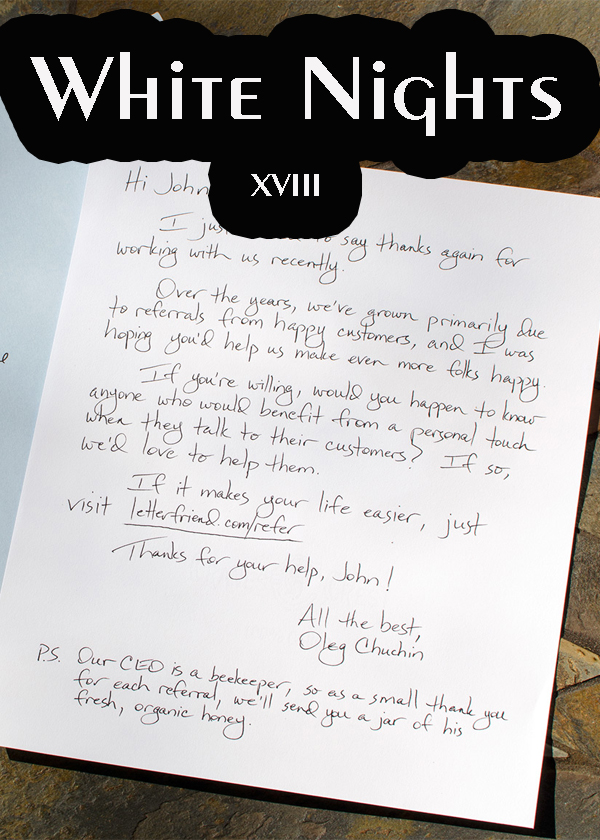 White Nights
XVIII
Hi John
I jus say thanks again for
working with us recently.
Over the years, we've grown primarily due
to referrals from happy customers, and I was
hoping you'd help us make even more folks happy.
If you're willing, would you happen to know
anyone who would benefit from a personal touch
when they talk to their customers? If so,
we'd love to help them.
If it makes your life easier, just
visit letterfriend.com/refer
Thanks for your help, John!
All the best,
Oleg Chuchin
P.S. Our CEO is a beekeeper, so as a small thank you
for each referral, we'll send you a jar of his
fresh, organic honey.